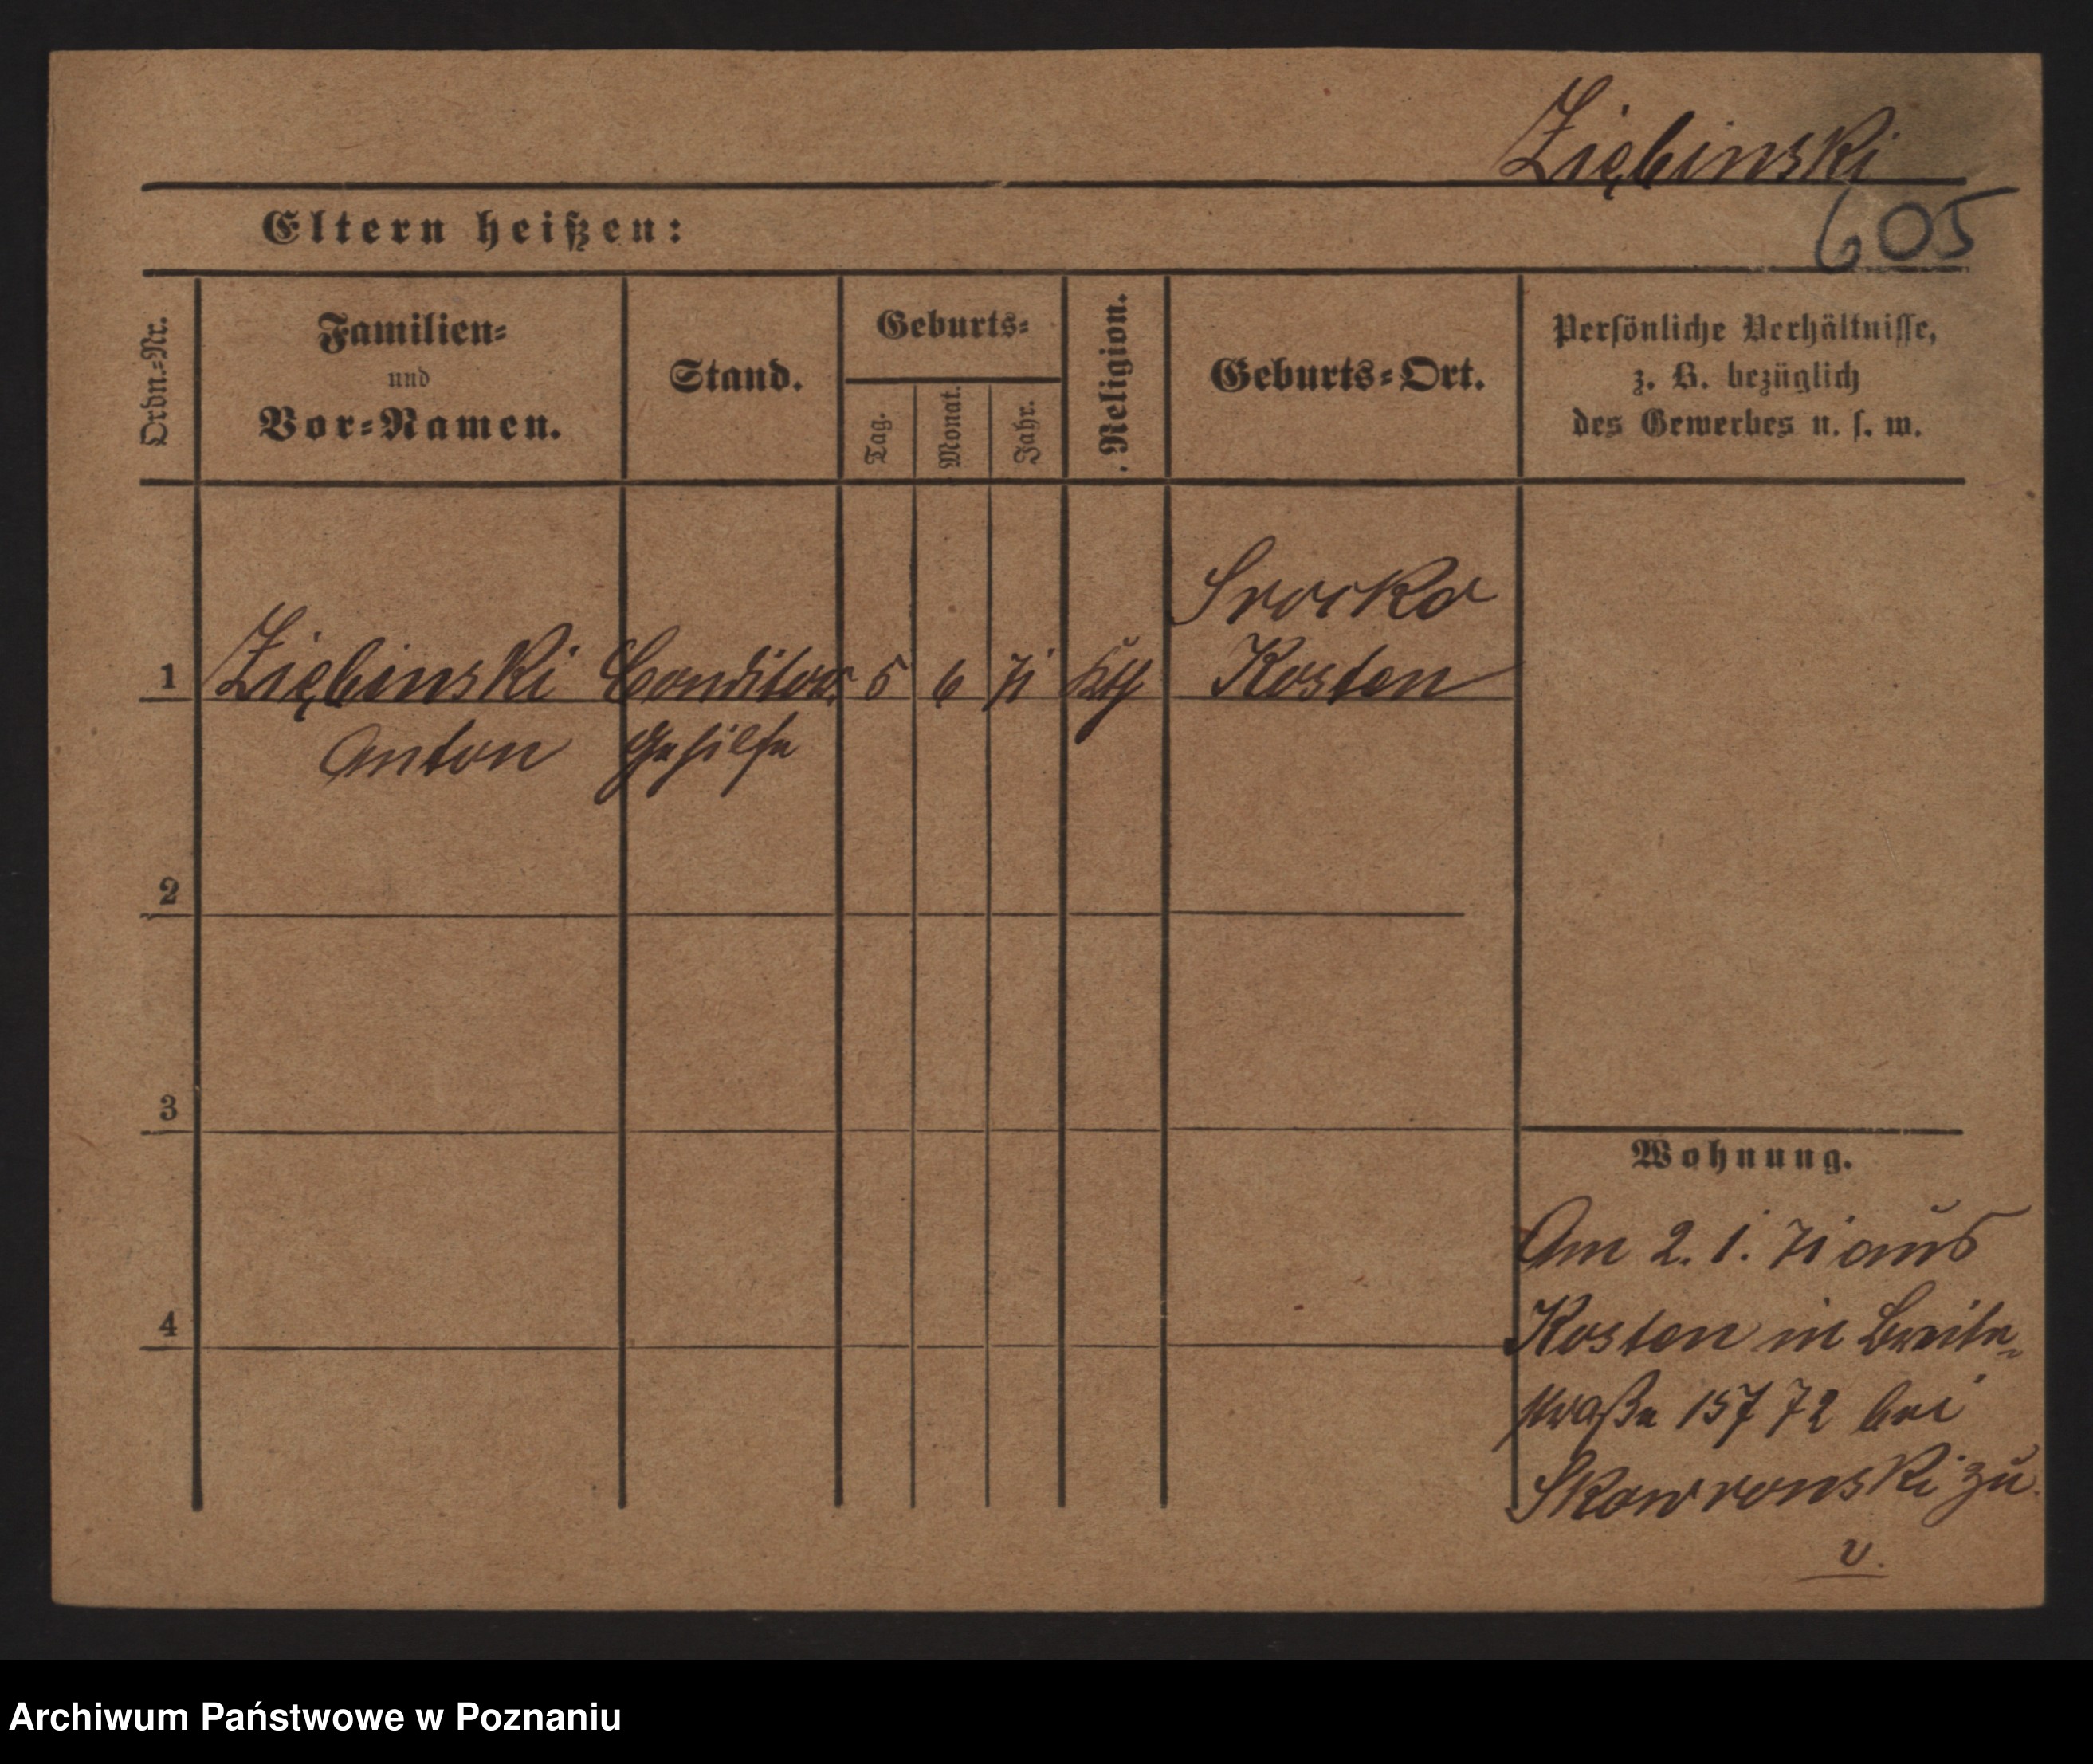 Ziębinski
605
Eltern heißen:
Ordn.-Nr.
Familien-
und
Vor-Namen.
Stand.
Geburts-
Tag.
Monat.
Jahr.
Religion.
Geburts-Ort.
Persönliche Verhältnisse,
z. B. bezüglich
des Gewerbes u. s. w.
Srocko
1 Ziębinski Conditor 5 6 71 Kosten
Anton Gehilfe
2
3
4
Wohnung.
Am 2. 1. 71 aus
Kosten in Breite-
straße 15 72 bei
Skowronski zu
v.
Archiwum Państwowe w Poznaniu